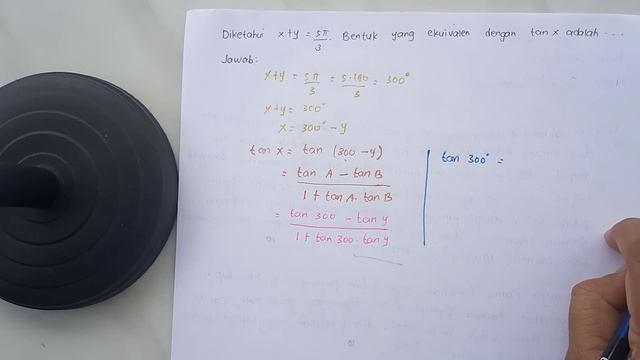 Diketahui x+y = 5π/3. Bentuk yang ekuivalen dengan tan x adalah ...
Jawab:
x+y = 5π/3 = 5.180/3 = 300°
x+y = 300°
x = 300° - y
tan x = tan (300 - y)
= tan A - tan B / 1 + tan A. tan B
= tan 300 - tan y / 1 + tan 300. tan y
tan 300° =